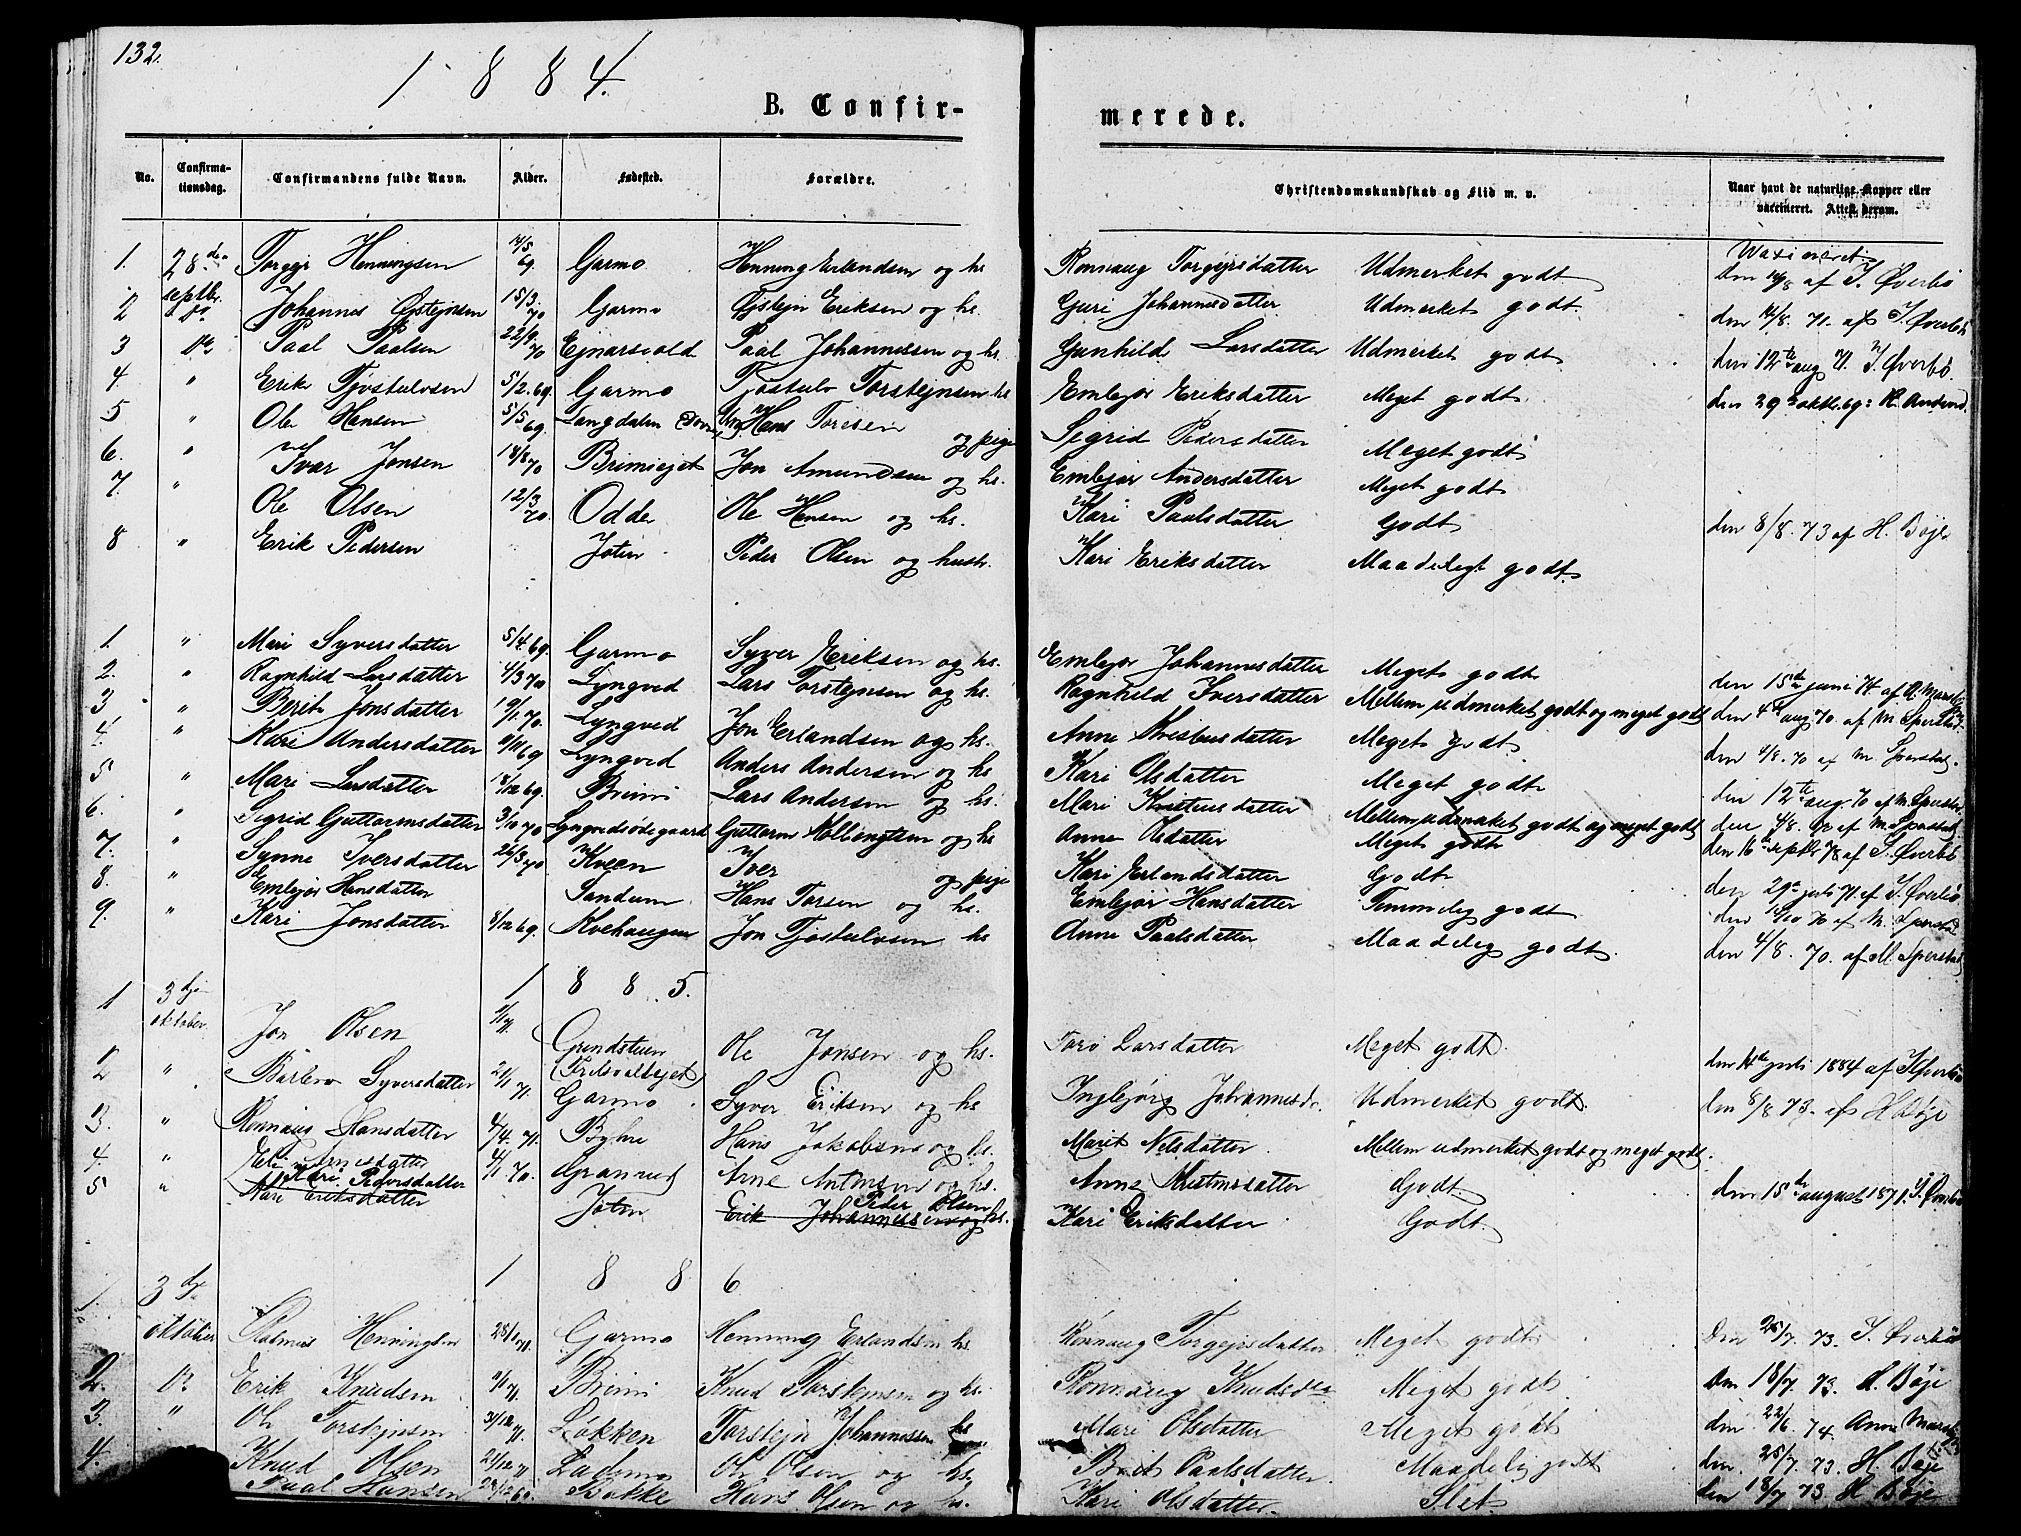 132.
1 8 8 4.
B. Confir-merede.
No. Confirma-tionsdag. Confirmandens fulde Navn. Alder. Fødested. Forældre. Christendomskundskab og Flid m. v. Naar havt de naturlige Kopper eller vaccineret. Attest derom.
1. 28de Torgejr Henningsen 14/5 69. Garmo Henning Erlandsen og hs Rønnaug Torgejrsdatter Udmerket godt Waxineret den 14/8 af I. Øverbø
2 septbr. do Johannes Øjstejnsen 15/3 70 Garmo Øjstejn Eriksen og hs. Guri Johannesdatter Udmerket godt. den 14/8. 71. af I. Øverbø
3 do Paal Paalsen 22/9 70 Ejnarsvold Paal Johannessen og hs. Gunhild Larsdatter Udmerket godt den 12te aug 71. I. Øverbø.
4. " Erik Tjostulvsen 5/2. 69. Garmo Tjostulv Torstejnsen hs Embejør Eriksdatter Meget godt. den 29de oktb. 69:
5 " Ole Hansen 5/5 69. Langdalen Hans Toresen og pige Segrid Pedersdatter Meget godt
6. " Ivar Jonsen 18/8 70 Brimiejet Jon Amundsen og hs. Embejør Andersdatter Meget godt
7. " Ole Olsen 12/3 70. Odde Ole Hansen og hs. Kari Paalsdatter Godt
8 " Erik Pedersen Joten Peder Olsen og hustr. Kari Eriksdatter Maadeligt godt. den 8/8. 73 af H. Bøje
1. " Mari Syversdatter 5/4. 69. Garmo Syver Eriksen og hs. Embejør Johannesdatter Meget godt
2. " Ragnhild Larsdatter 4/3 70 Lyngved Lars Torstejnsen og hs. Ragnhild Iversdatter Mellem udmerket godt og meget godt den 15de juni 74. af
3 " Berit Jonsdatter 19/1. 70. Lyngved Jon Erlandsen og hs. Anne Kristensdatter Meget godt den 4de aug 70. af M Sperstad.
4. " Kari Andersdatter 69 Lyngved Anders Andersen og hs Kari Olsdatter Meget godt den 4/8. 70 af M. Sperstad.
5 " Mari Larsdatter 18/12 69. Brimi Lars Andersen og hs. Mari Kristensdatter Mellem udmerket godt og meget godt den 12te aug. 70 af M. Sperstad
6. " Segrid Guttormsdatter 3/10 70 Lyngvedsødegaard Guttorm Kolbengtsen og hs Anne Olsdatter Meget godt den 4/8. 70 af M. Sperstad.
7. " Synne Iversdatter 26/3 70 Kveen Iver og pige Kari Erlandsdatter Godt. den 16de septbr 78 af I. Øverbø
8. " Embejør Hansdatter Sandum Hans Torsen og hs. Embejør Hansdatter Temmelig godt den 29de juli 71. af I. Øverbø.
9. " Kari Jonsdatter 8/12 69. Kvehaugen Jon Tjostulvsen hs Anne Paalsdatter Maadelig godt. den 14/10 70 af M. Sperstad
den 4/8. 70. af M. Sperstad
1 8 8 5.
1 3dje oktober. Jon Olsen 71. Grindstuen (Fritsvoldejet) Ole Jonsen og hs. Toro Larsdatter Meget godt. den 14de juli 1884 af I Øverbø
2 " Barbro Syversdatter 21/1 71. Garmo Syver Eriksen og hs Ingebjørg Johannesd. Udmerket godt. den 8/8 73. af H Bøje
3. " Rønnaug Hansdatter 4/4. 71. Byhre Hans Jakobsen og hs. Marit Nelsdatter. Mellem udmerket godt og meget godt.
4. " Eli Arnesdatter 4/1 70. Granrud Arne Antonsen og hs. Anne Kristensdatter Godt. den 15de august 1871. I. Øverbø
5 " Kari Pedersdatter Kari Eriksdatter Joten Peder Olsen Erik Johannessen og hs. Kari Eriksdatter Godt.
1 8 8 6
1. 3dje oktober Rasmus Henningsen 25/1 71. Garmo Henning Erlandsen hs. Rønnaug Torgejrsdatter. Meget godt. den 25/7. 73. I. Øverbø
2. do Erik Knudsen 71. Brimi Knud Torstensen og hs. Rønnaug Knudsd. Meget godt den 18/7. 73. H. Bøje
3. " Ole Torstejnsen 31/12 71. Løkken Torstejn Johannessen hs Mari Olsdatter Meget godt den 22/6. 74.
4. Knud Olsen 21/12 71 Ladsmo Ole Olsen og hs. Brit Paalsdatter. Maadelig godt den 25/7. 73. H. Bøje
Paal Hansen Bakke Hans Olsen og hs. Kari Olsdatter. Slet. den 18/7 73. H. Bøje